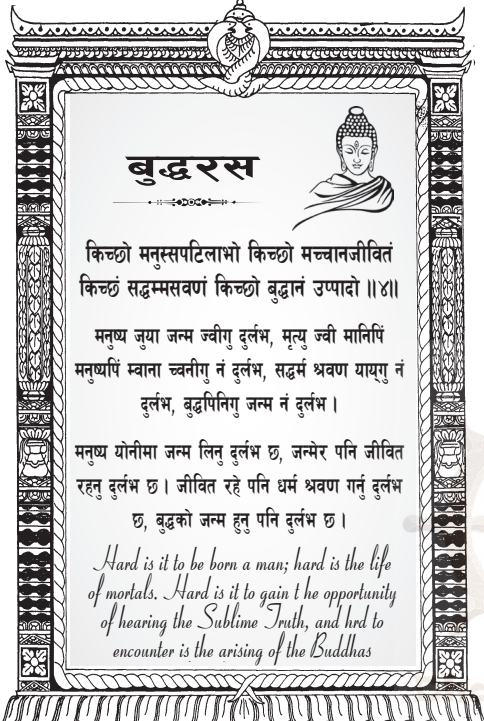 बुद्धरस
किच्छो मनुस्सपटिलाभो किच्छो मच्चानजीवितं
किच्छं सद्धम्मसवणं किच्छो बुद्धानं उप्पादो ॥४॥
मनुष्य जुया जन्म ज्वीगु दुर्लभ, मृत्यु ज्वी मानिपिं
मनुष्यपिं म्वाना च्वनीगु नं दुर्लभ, सद्धर्म श्रवण याय्गु नं
दुर्लभ, बुद्धपिनिगु जन्म नं दुर्लभ ।
मनुष्य योनीमा जन्म लिनु दुर्लभ छ, जन्मेर पनि जीवित
रहनु दुर्लभ छ । जीवित रहे पनि धर्म श्रवण गर्नु दुर्लभ
छ, बुद्धको जन्म हुनु पनि दुर्लभ छ ।
Hard is it to be born a man; hard is the life
of mortals. Hard is it to gain t he opportunity
of hearing the Sublime Truth, and hrd to
encounter is the arising of the Buddhas